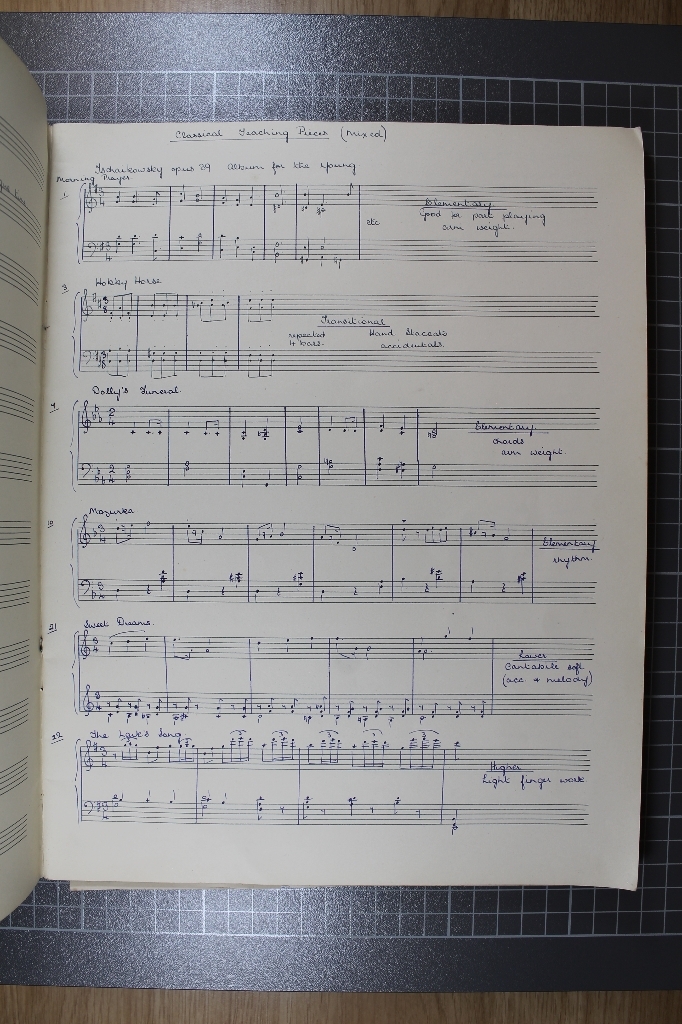 Classical Teaching Pieces (Mixed)
Tschaikowsky opus 39 Album for the Young
Morning Prayer
1
Elementary
Good for part playing
arm weight.
etc
3
Hobby Horse
Transitional
repeated
4 bars.
Hand Staccato
accidentals.
Dolly's Funeral
Elementary
chords
arm weight.
10
Mazurka
Elementary
rhythm.
21
Sweet Dreams.
Lower
Cantabile soft
(acc. & melody)
22
The Lark's Song
Higher
Light finger work